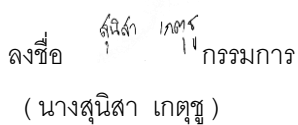 ลงชื่อ สุนิสา เกตุชู กรรมการ
( นางสุนิสา เกตุชู )